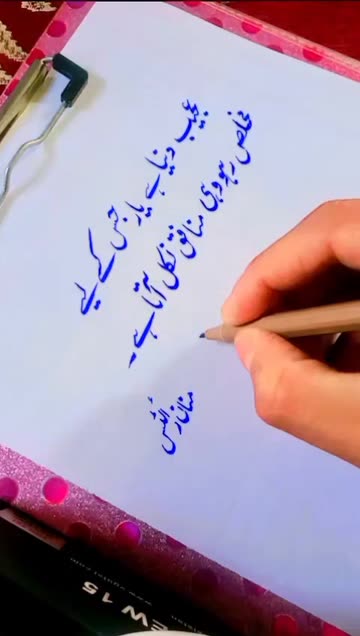 عجیب دنیا ہے یار جس کے لیے
مخلص رہو وہی منافق نکل آتا ہے۔
منان رائٹس
EW 15